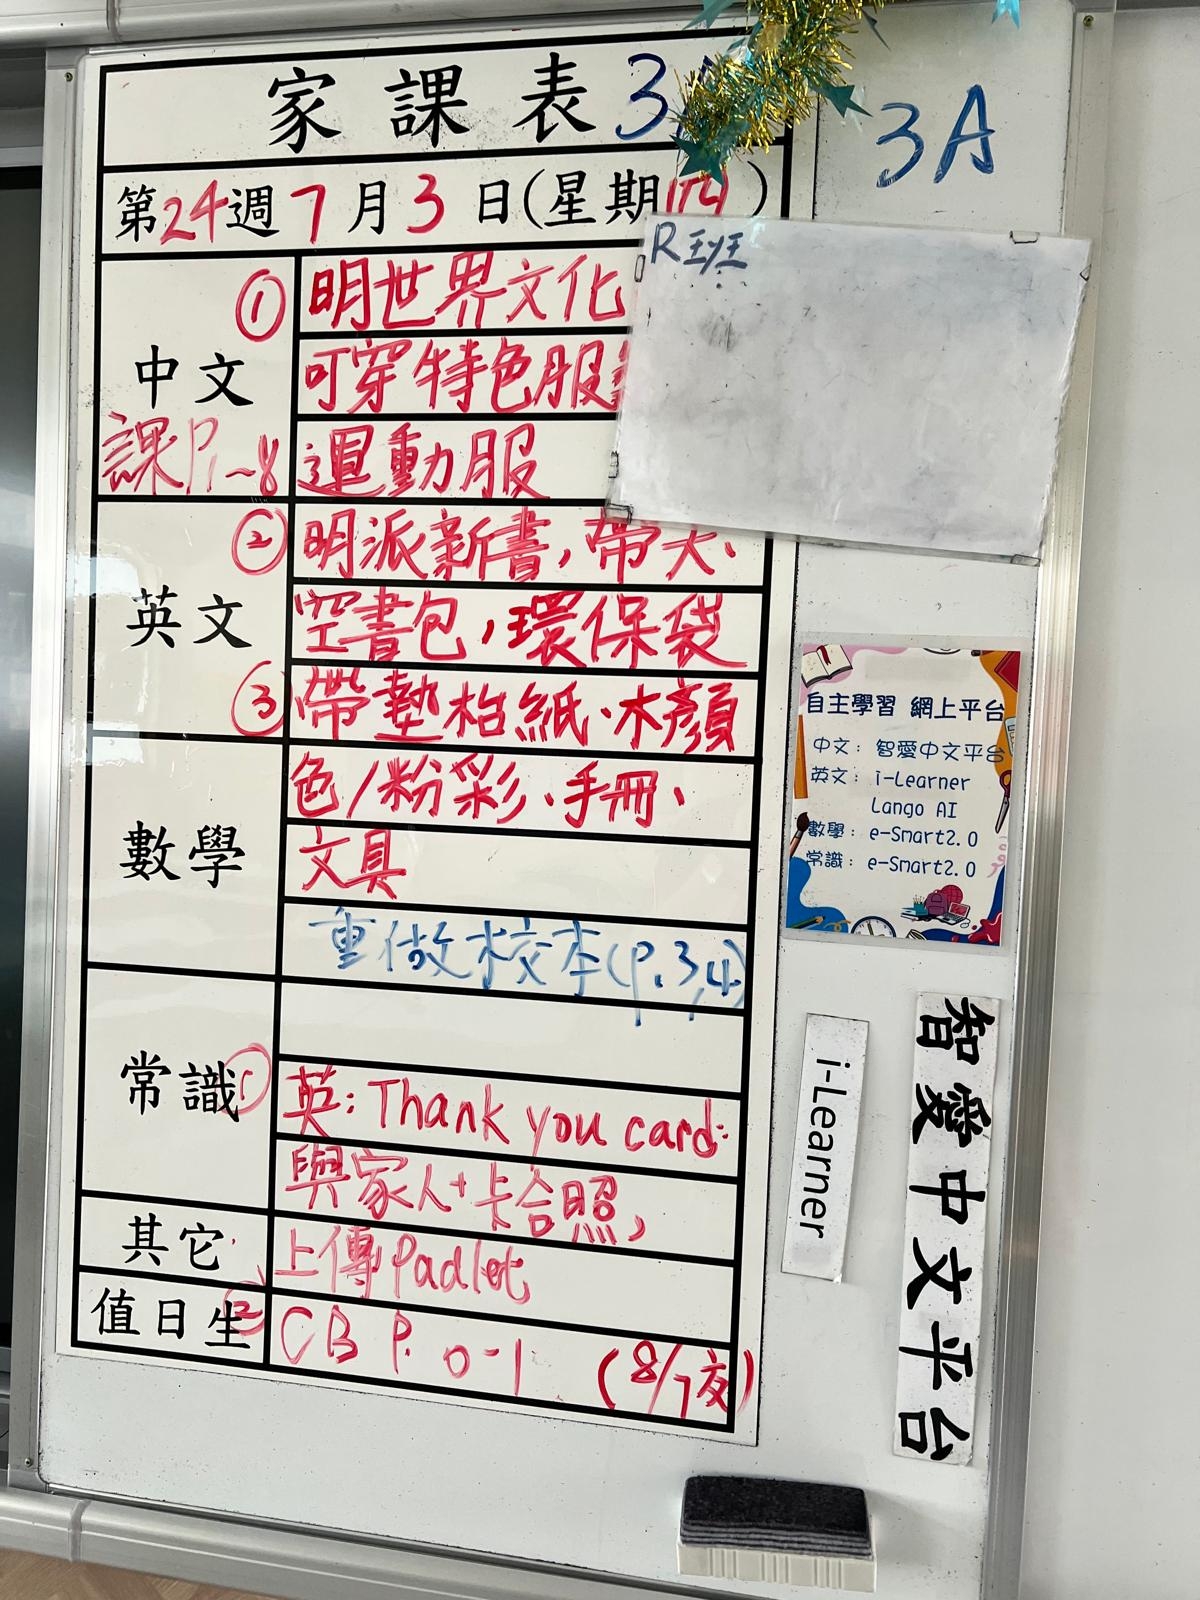 家課表 3A
3A
第24週 7月3日(星期四)
R班
① 明世界文化
中文 可穿特色服
課P1~8 運動服
② 明派新書,帶大、
英文 空書包,環保袋
③ 帶墊枱紙、木顏
色/粉彩、手冊、
數學 文具
重做校本(P.3,4)
常識
① 英: Thank you card:
與家人+卡合照,
其它 上傳Padlet
值日生 ② CB P. 0-1 (8/7交)
自主學習 網上平台
中文: 智愛中文平台
英文: i-Learner
Lango AI
數學: e-Smart2.0
常識: e-Smart2.0
i-Learner
智愛中文平台